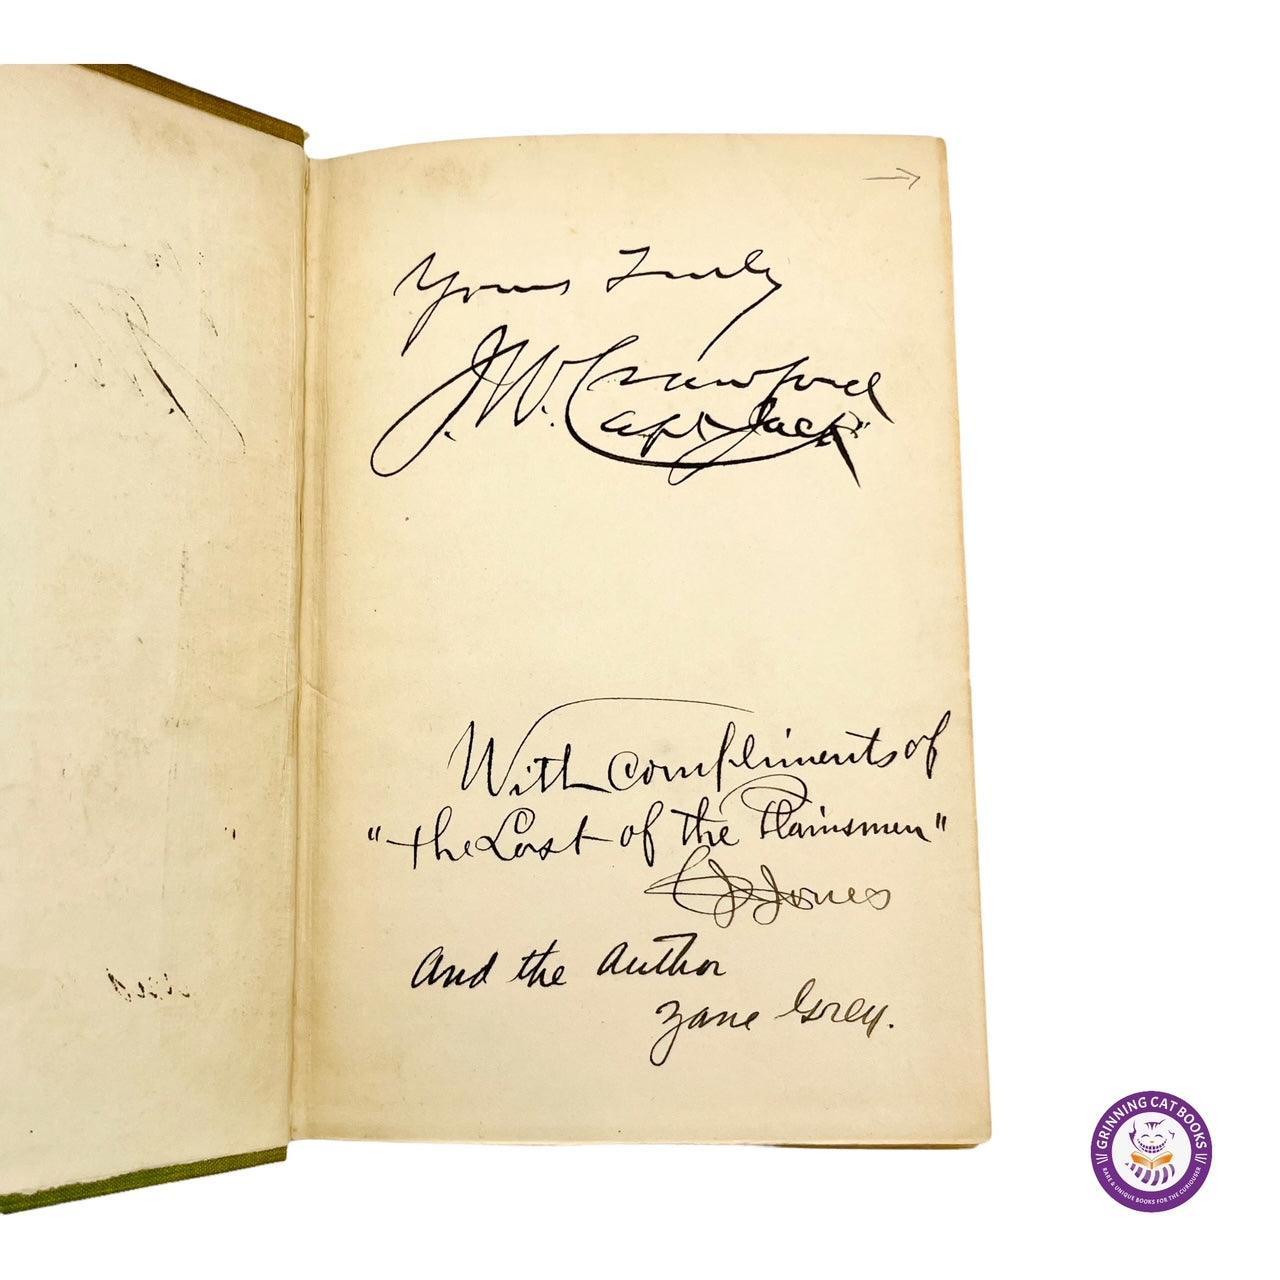 Yours Truly
J. W. Crawford
"Capt Jack"
With compliments of
"the Last of the Plainsmen"
C J Jones
and the author
Zane Grey.
GRINNING CAT BOOKS
RARE & UNIQUE BOOKS FOR THE CURIOUSER